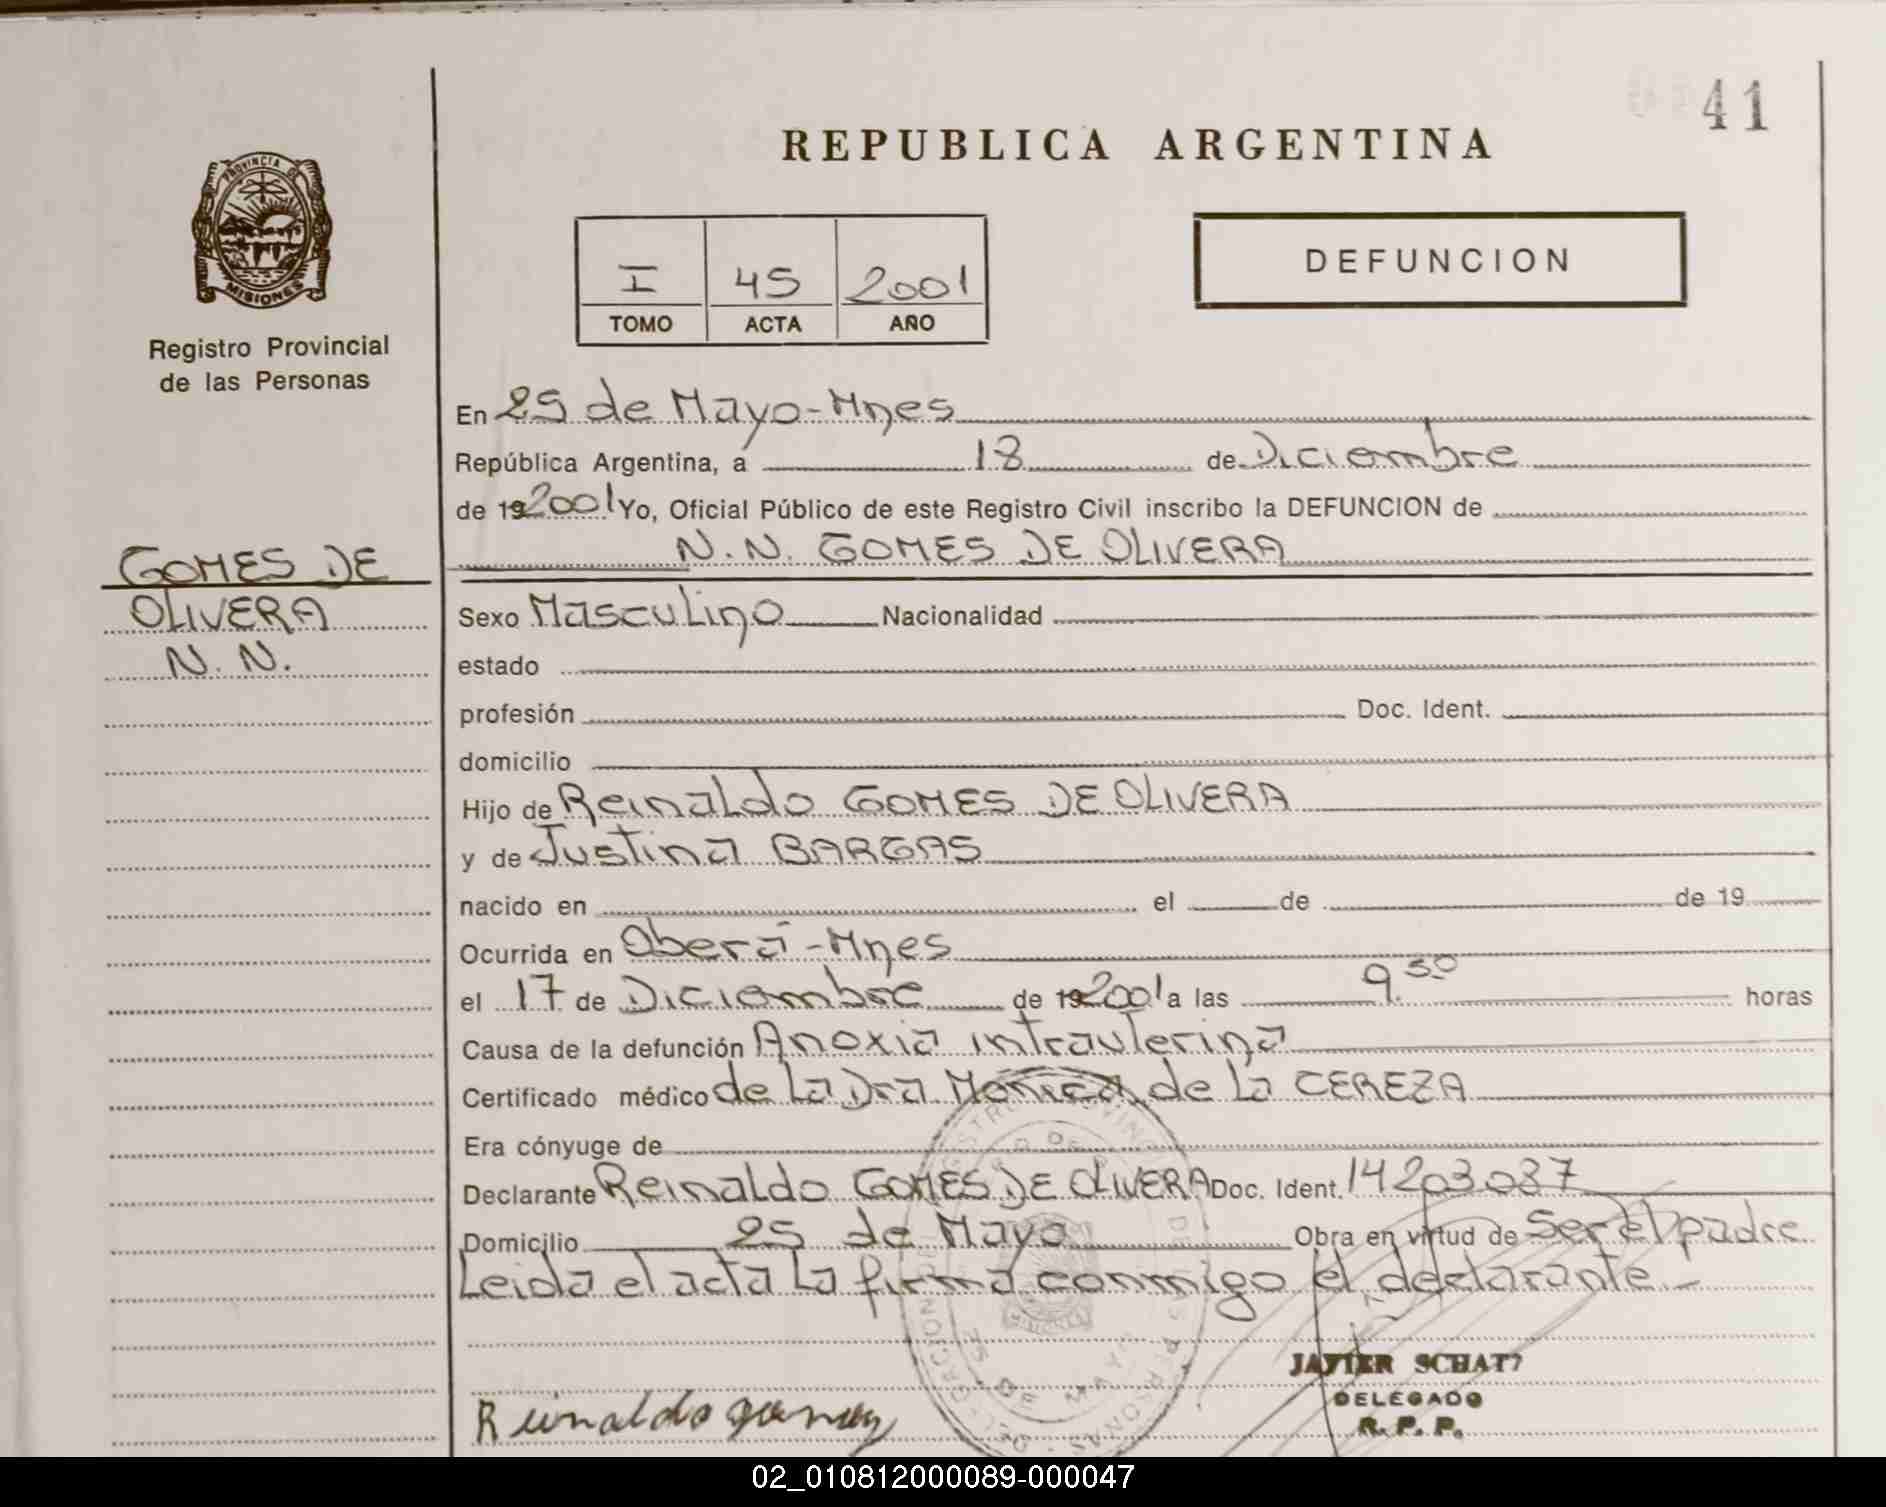 41
REPUBLICA ARGENTINA
PROVINCIA DE
MISIONES
Registro Provincial
de las Personas
I 45 2001
TOMO ACTA AÑO
DEFUNCION
En 25 de Mayo-Mnes
República Argentina, a 18 de Diciembre
de 192001 Yo, Oficial Público de este Registro Civil inscribo la DEFUNCION de
N.N. GOMES DE OLIVERA
GOMES DE
OLIVERA
N. N.
Sexo Masculino Nacionalidad
estado
profesión Doc. Ident.
domicilio
Hijo de Reinaldo GOMES DE OLIVERA
y de Justina BARGAS
nacido en el de de 19
Ocurrida en Oberá-Mnes
el 17 de Diciembre de 192001 a las 9.50 horas
Causa de la defunción Anoxia intrauterina
Certificado médico de La Dra Mónica de La CEREZA
Era cónyuge de
Declarante Reinaldo GOMES DE OLIVERA Doc. Ident. 14203.037
Domicilio 25 de Mayo Obra en virtud de Ser el padre
Leida el acta La firma conmigo el declarante.-
JAVIER SCHATZ
DELEGADO
R. P. P.
Reinaldo
02_010812000089-000047